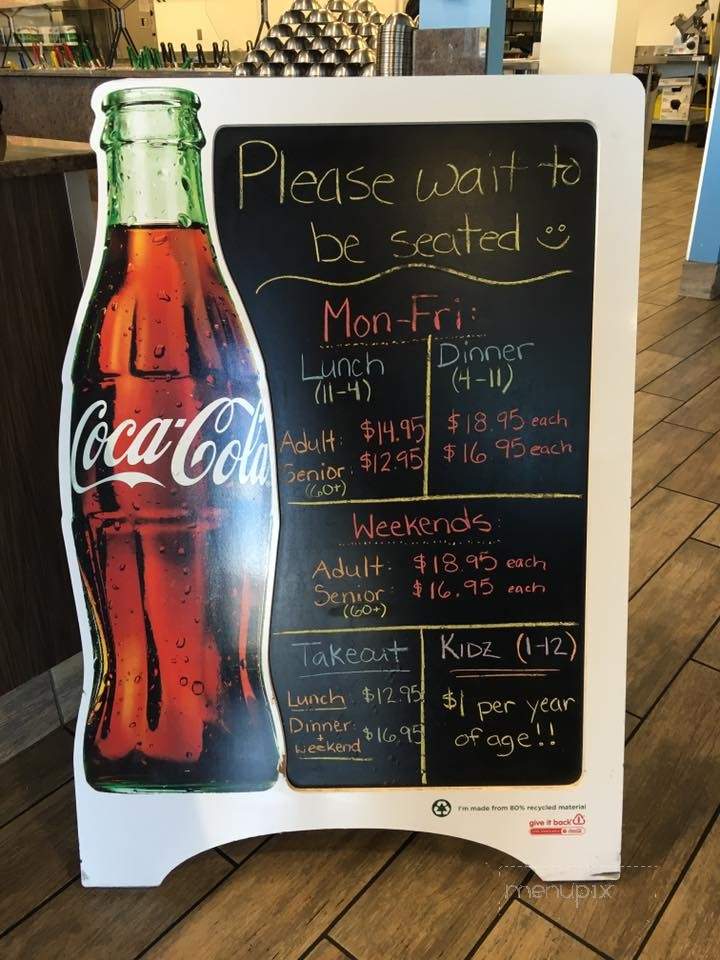 Please wait to
be seated
Mon-Fri:
Lunch
(11-4)
Dinner
(4-11)
Adult: $14.95
Senior: $12.95
(60+)
$18.95 each
$16.95 each
Weekends:
Adult: $18.95 each
Senior $16.95 each
(60+)
Takeout
Lunch $12.95
Dinner
+
weekend $16.95
KIDZ (1-12)
$1 per year
of age!!
Coca-Cola
I'm made from 80% recycled material
give it back
menupix